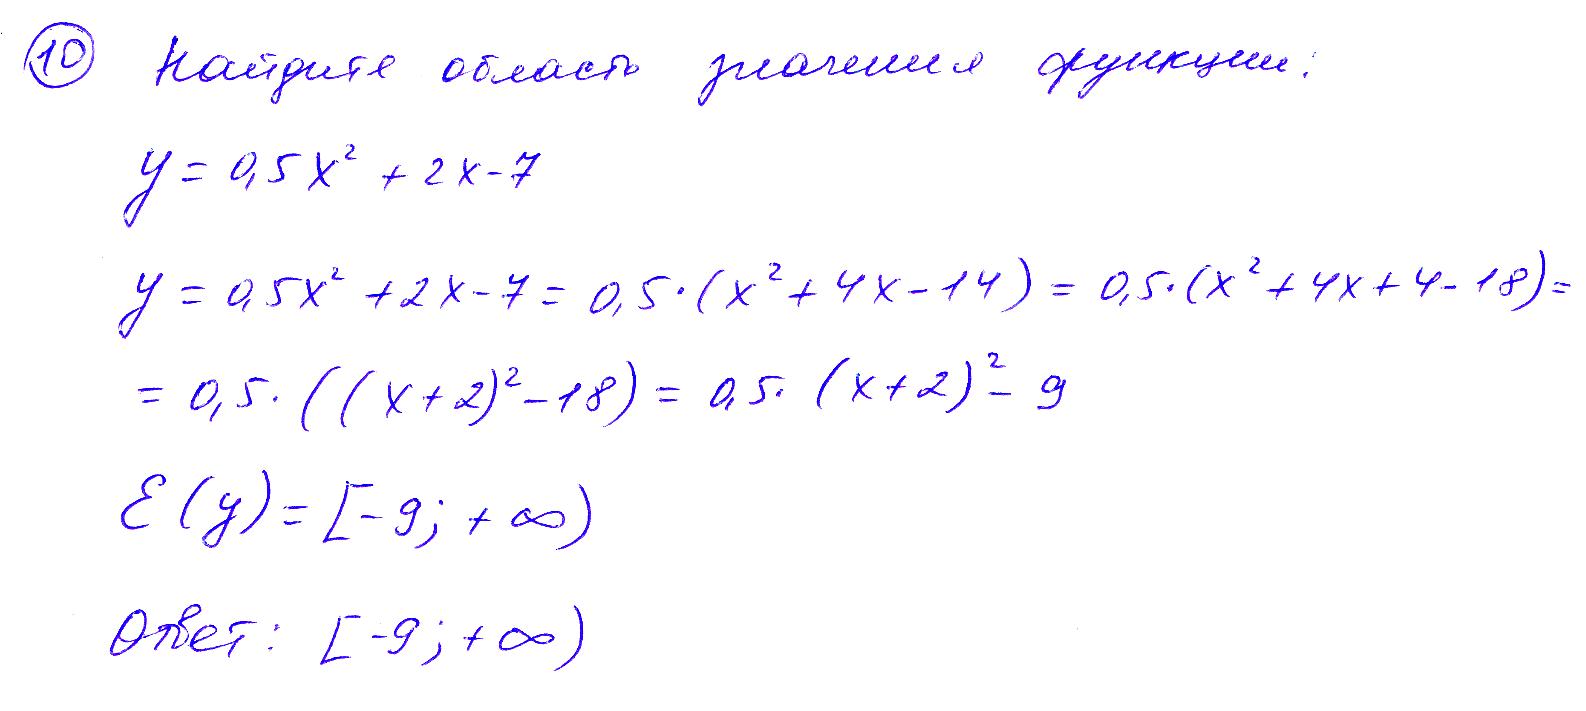 10 Найдите область значения функции:
y = 0,5x² + 2x - 7
y = 0,5x² + 2x - 7 = 0,5·(x² + 4x - 14) = 0,5·(x² + 4x + 4 - 18) =
= 0,5·((x+2)² - 18) = 0,5·(x+2)² - 9
E(y) = [-9; +∞)
Ответ: [-9; +∞)